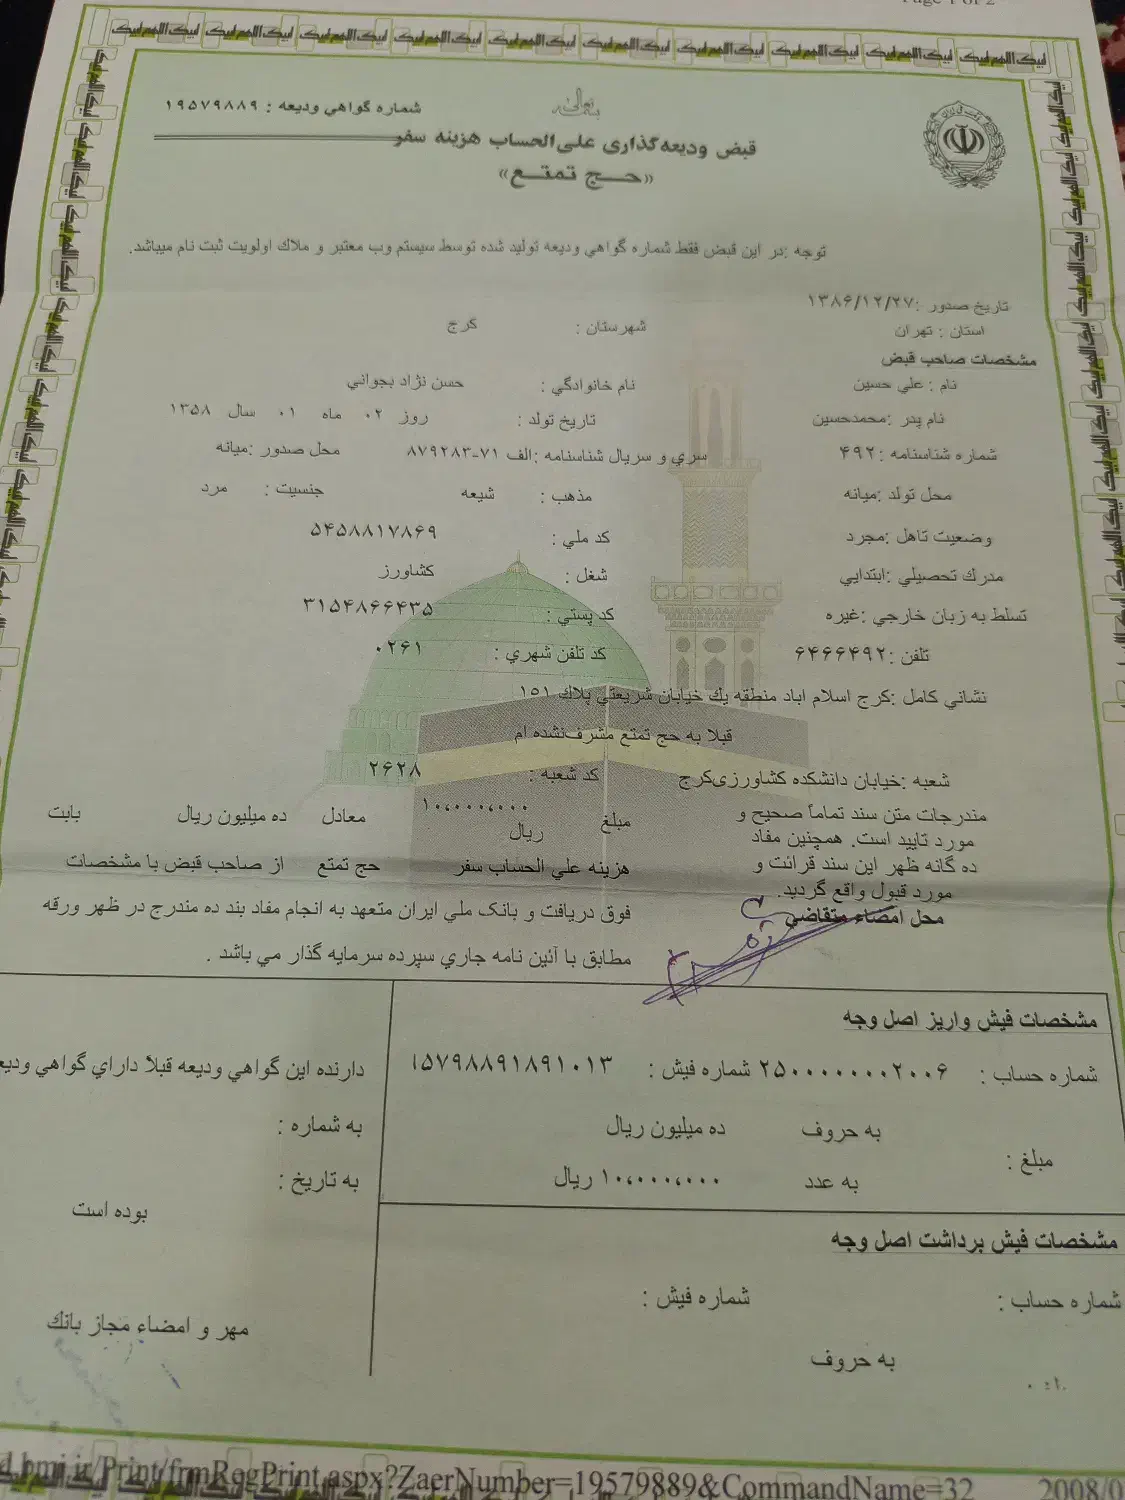 Page 1 of 2
لبیک اللهم لبیک لبیک اللهم لبیک لبیک اللهم لبیک لبیک اللهم لبیک لبیک اللهم لبیک لبیک اللهم لبیک لبیک اللهم لبیک لبیک اللهم لبیک لبیک اللهم لبیک لبیک اللهم لبیک
بسمه تعالی
شماره گواهي وديعه : ۱۹۵۷۹۸۸۹
قبض وديعه‌گذاری علی‌الحساب هزینه سفر
«حـــج تمتـــع»
توجه :در اين قبض فقط شماره گواهي وديعه توليد شده توسط سيستم وب معتبر و ملاك اولويت ثبت نام ميباشد.
تاريخ صدور :۱۳۸۶/۱۲/۲۷
استان : تهران شهرستان : كرج
مشخصات صاحب قبض
نام : علي حسين نام خانوادگي : حسن نژاد بجواني
نام پدر :محمدحسين تاريخ تولد : روز ۰۲ ماه ۰۱ سال ۱۳۵۸
شماره شناسنامه :۴۹۲ سري و سريال شناسنامه :الف ۷۱-۸۷۹۲۸۳ محل صدور :ميانه
محل تولد :ميانه مذهب : شيعه جنسيت : مرد
وضعيت تاهل :مجرد كد ملي : ۵۴۵۸۸۱۷۸۶۹
مدرك تحصيلي :ابتدايي شغل : كشاورز
تسلط به زبان خارجي :غيره كد پستي : ۳۱۵۴۸۶۶۴۳۵
تلفن :۶۴۶۶۴۹۲ كد تلفن شهري : ۰۲۶۱
نشاني كامل :كرج اسلام اباد منطقه يك خيابان شريعتي پلاك ۱۵۱
قبلا به حج تمتع مشرف‌نشده ام
شعبه :خيابان دانشكده كشاورزی‌كرج كد شعبه : ۲۶۲۸
مندرجات متن سند تماماً صحيح و
مورد تاييد است. همچنين مفاد
ده گانه ظهر اين سند قرائت و
مورد قبول واقع گرديد.
محل امضاء متقاضي
مبلغ ۱۰،۰۰۰،۰۰۰ ريال معادل ده ميليون ريال بابت
هزينه علي الحساب سفر حج تمتع از صاحب قبض با مشخصات
فوق دريافت و بانک ملي ايران متعهد به انجام مفاد بند ده مندرج در ظهر ورقه
مطابق با آئين نامه جاري سپرده سرمايه گذار مي باشد .
مشخصات فيش واريز اصل وجه
شماره حساب : ۲۵۰۰۰۰۰۰۰۰۲۰۰۶ شماره فيش : ۱۵۷۹۸۸۹۱۸۹۱۰۱۳
مبلغ :
به حروف ده ميليون ريال
به عدد ۱۰،۰۰۰،۰۰۰ ريال
مشخصات فيش برداشت اصل وجه
شماره حساب : شماره فيش :
به حروف
دارنده اين گواهي وديعه قبلاً داراي گواهي
به شماره :
به تاريخ :
بوده است
مهر و امضاء مجاز بانك
d.bmi.ir/Print/frmRegPrint.aspx?ZaerNumber=19579889&CommandName=32 2008/0